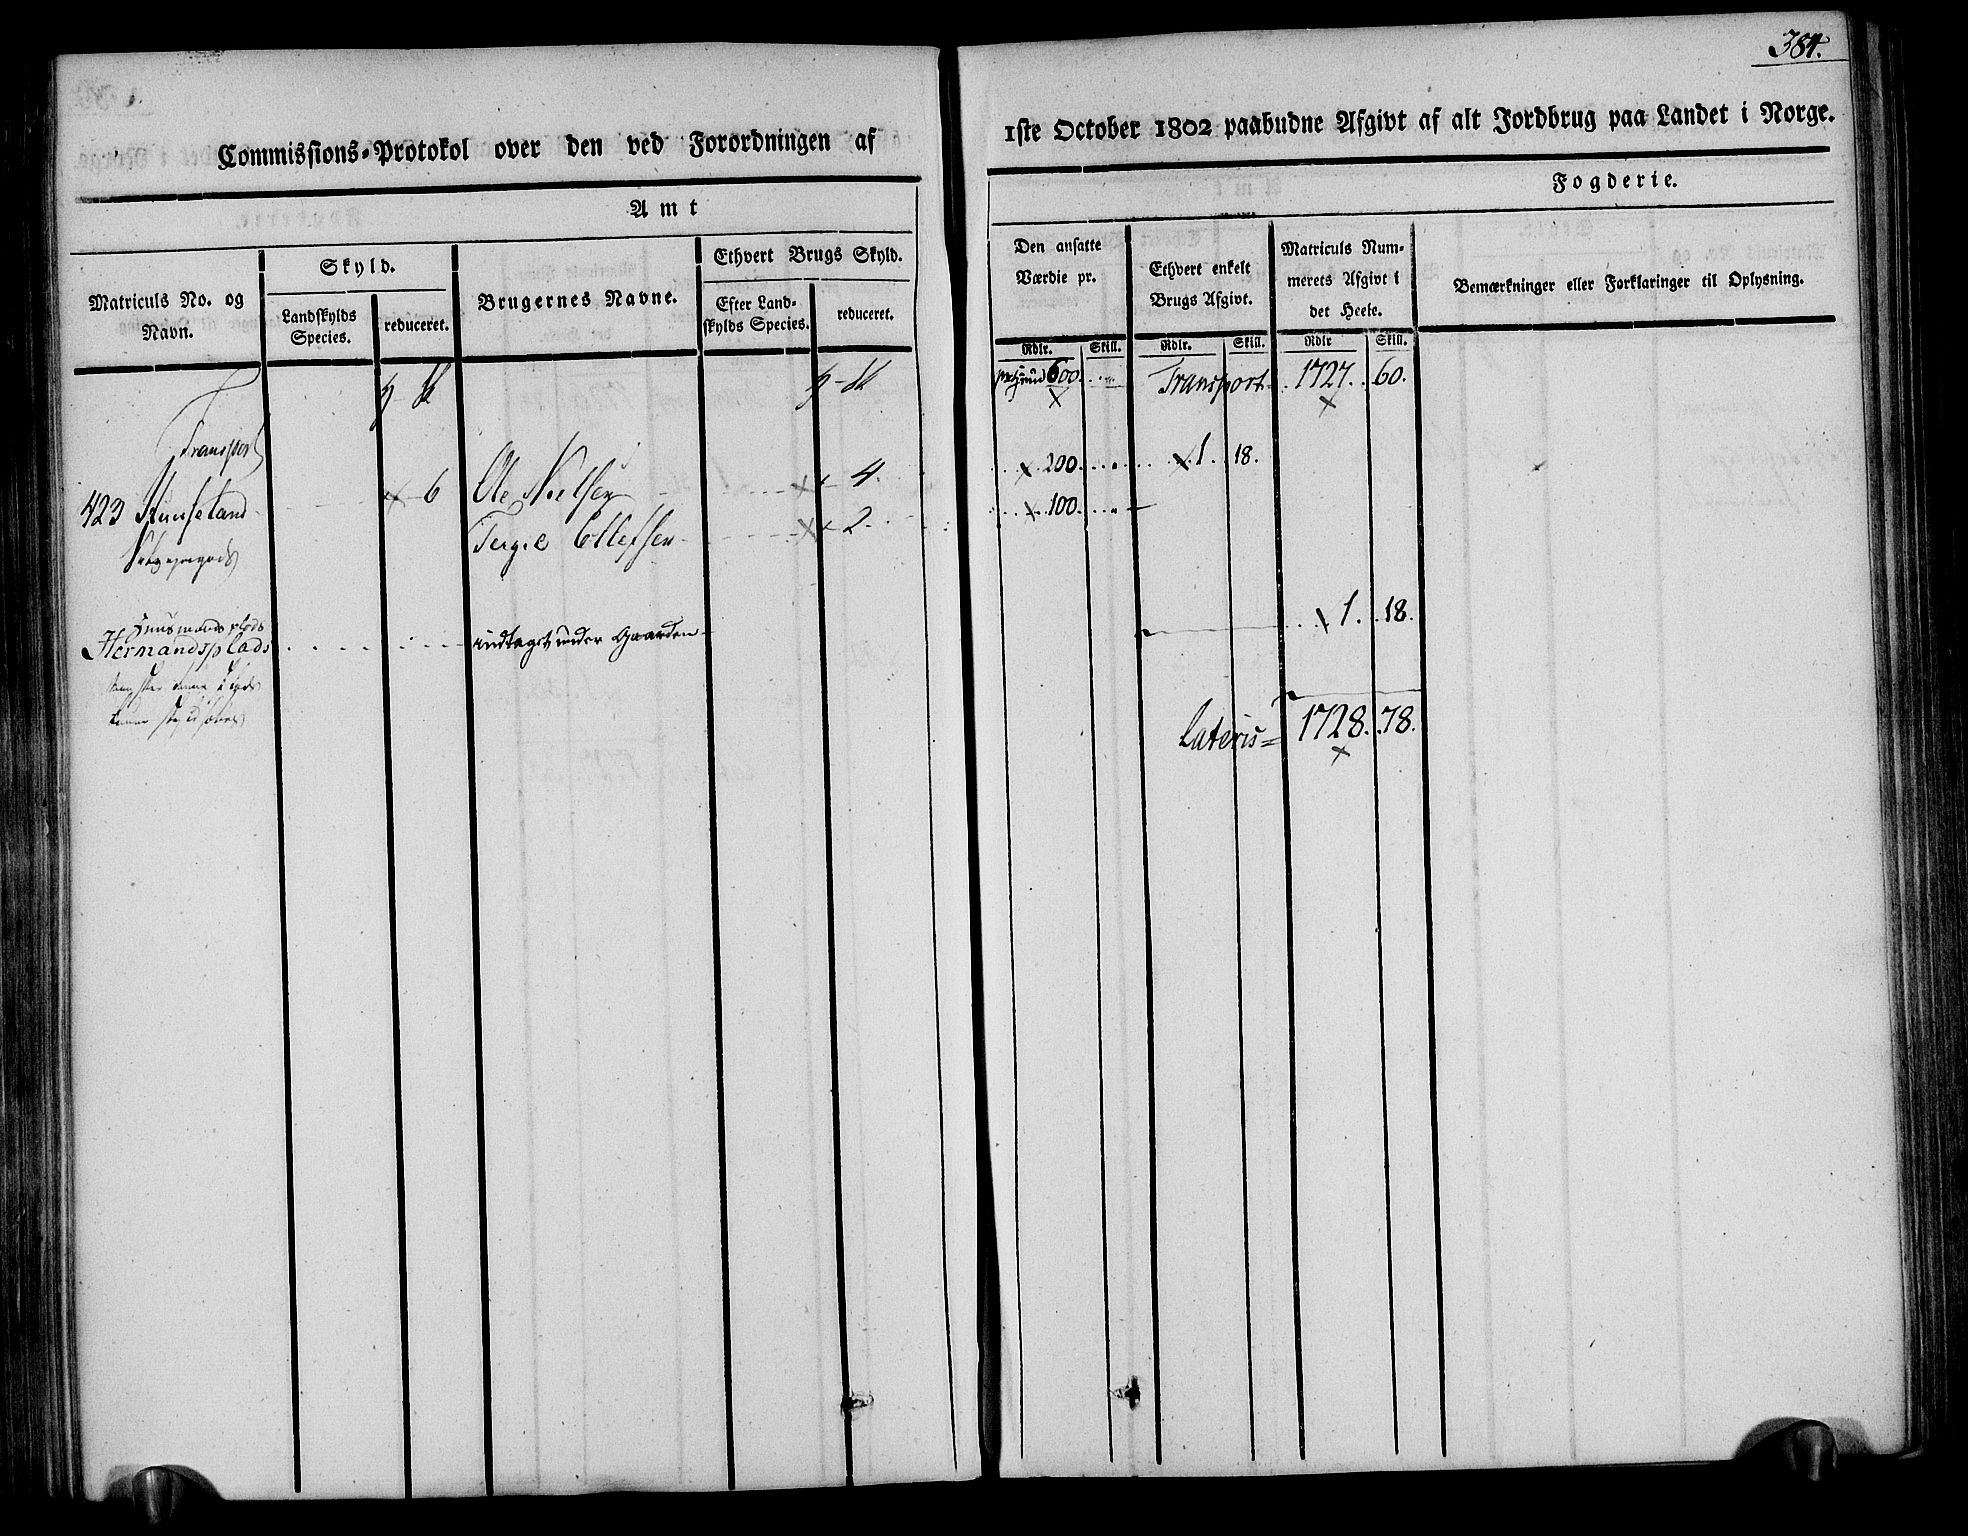 384.
Commissions-Protokol over den ved Forordningen af
1ste October 1802 paabudne Afgivt af alt Jordbrug paa Landet i Norge.
Amt
Fogderie.
Matriculs No. og Navn.
Skyld.
Landskylds Species.
reduceret.
Brugernes Navne.
Ethvert Brugs Skyld.
Efter Landskylds Species.
reduceret.
Den ansatte Værdie pr.
Rdlr. Skill.
Ethvert enkelt Brugs Afgivt.
Rdlr. Skill.
Matriculs Nummerets Afgivt i det Heele.
Rdlr Skill.
Bemærkninger eller Forklaringer til Oplysning.
600. Transport 1727. 60.
Transport
423 6 Ole Nielsen 4. 200. 1. 18.
Ellefsen 2. 100.
1. 18.
Huusmands plads
Hermandsplads indtaget under Gaarden
Lateris 1728. 78.